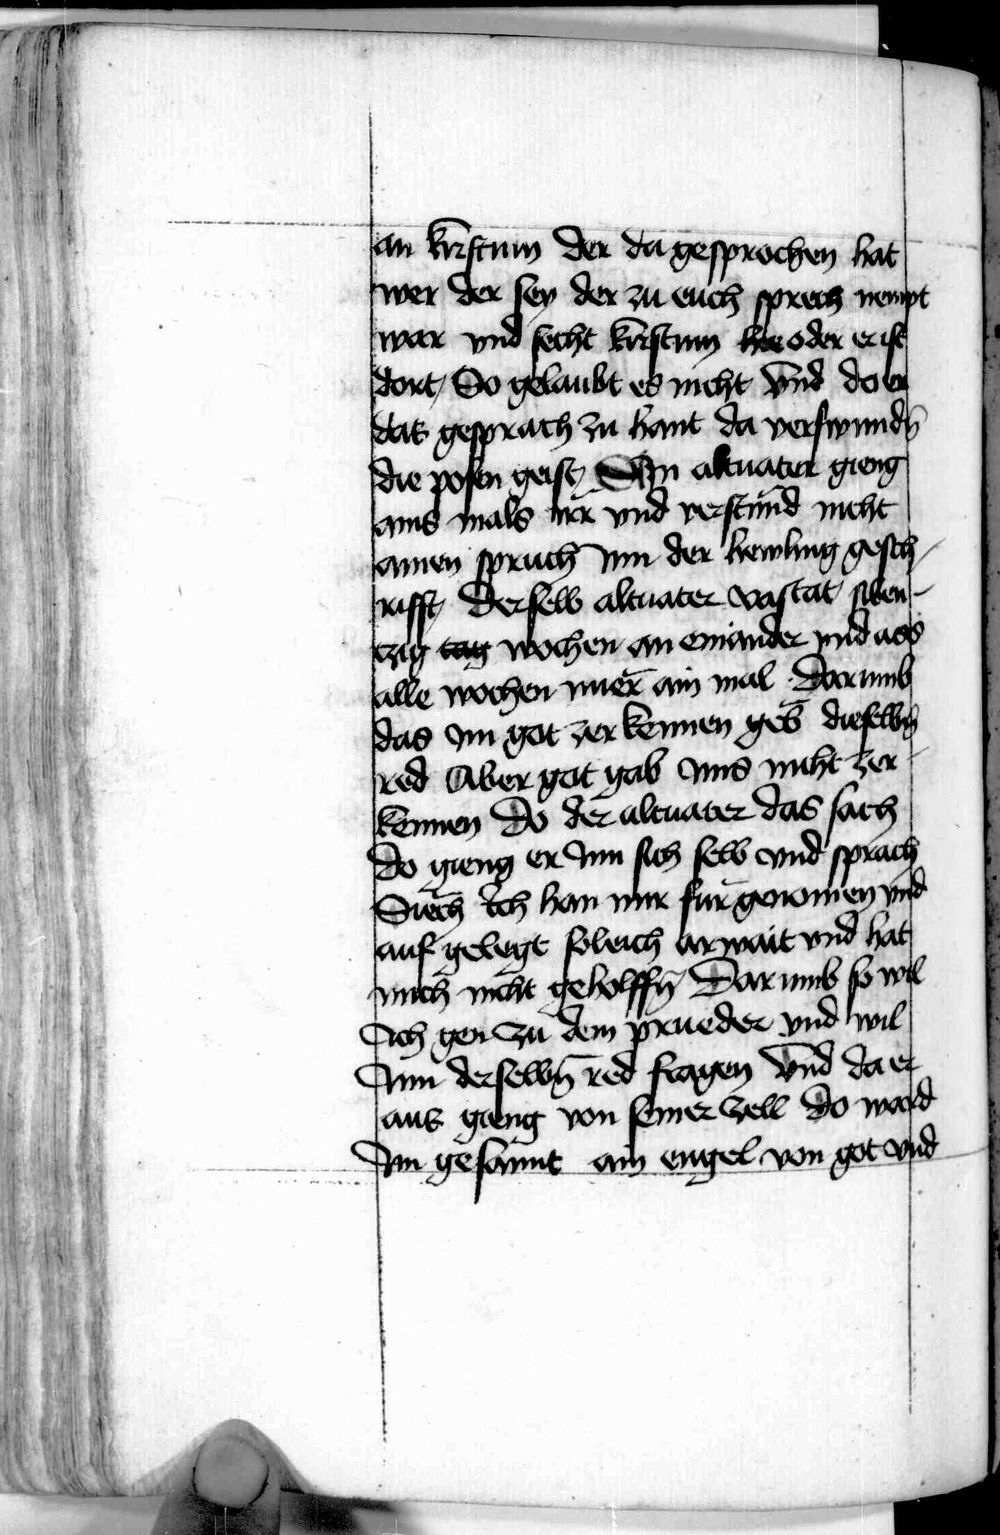 an kristum der da gesprochen hat
wer der sey der zu euch sprech nempt
war vnd secht kristum hie oder er ist
dort / So gelaubt es nicht Vnd do er
das gesprach zu hant da verswundn̄
die posen geist / Ain altuater gieng
ains mals irr vnd verstund nicht
ainen spruch Inn der hewling gesch-
rifft / Derselb altuater vastat siben-
tzig tag wochen an einander vnd ass
alle wochen nuer ain mal Darumb
das Im got zer kennen geb dieselbn̄
red Aber got gab Ims nicht zer
kennen Do der altuater das sach
Do gieng er Inn sich selb vnd sprach
Siech Ich han mir fur genomen vnd
auf gelegt soleich arwait vnd hat
mich nicht geholffn̄ Darumb so wil
Ich gen zu dem prueder vnd wil
Inn derselbn̄ red fragen Vnd da er
aus gieng von seiner zell Do ward
Im gesannt ain engel von got vnd